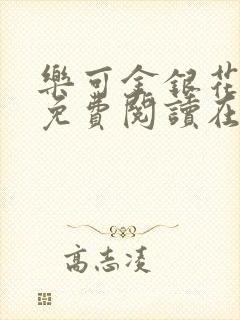 樂可金銀花
免費閱讀在
高志凌